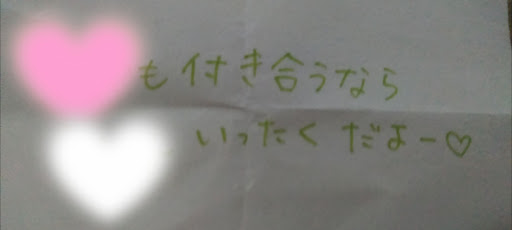 も付き合うなら
いったくだよー♡